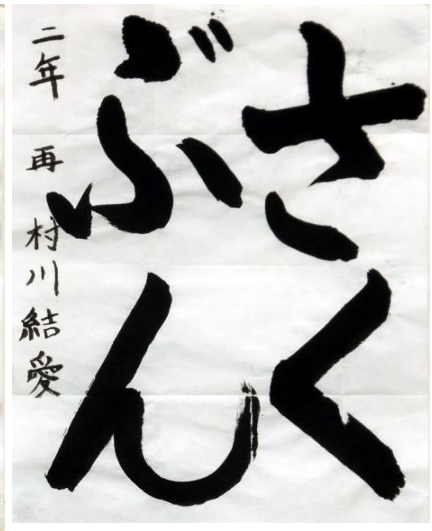 さく
ぶん
二年 再 村川結愛